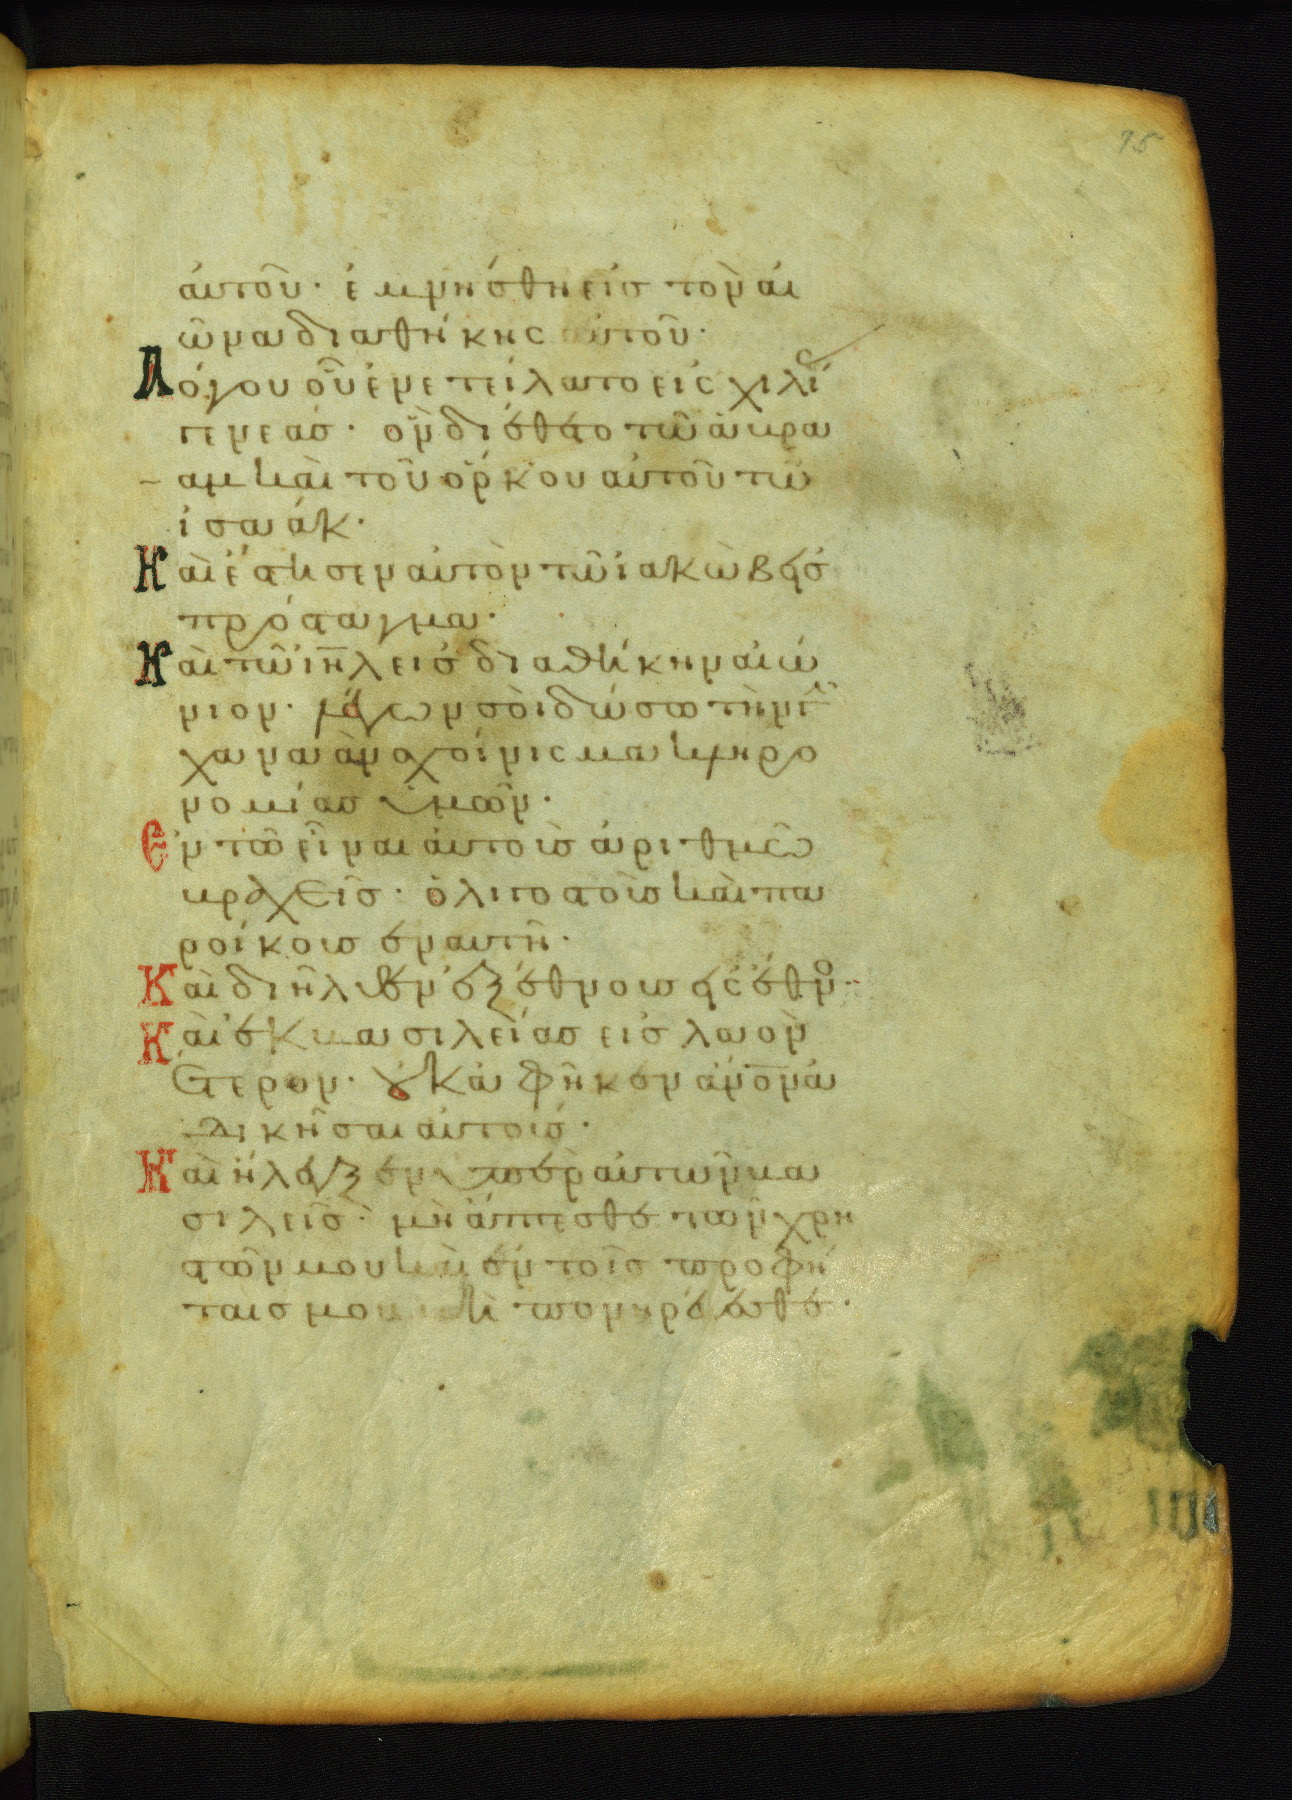 75
αὐτοῦ· ἐμνήσθη εἰς τὸν αἰ
ῶνα διαθήκης αὐτοῦ·
Λόγου οὗ ἐνετείλατο εἰς χιλί
γενεάς· ὃν διέθετο τῶ ἀβρα
αμ καὶ τοῦ ὅρκου αὐτοῦ τῶ
ἰσαάκ·
Καὶ ἔστησεν αὐτὸν τῶ ἰακὼβ εἰς
πρόσταγμα·
Καὶ τῶ ιηλ εἰς διαθήκην αἰώ
νιον· λέγων σοὶ δώσω τὴν γῆν
χαναὰν σχοίνισμα κληρο
νομίας ὑμῶν·
Ἐν τῶ εἶναι αὐτοὺς ἀριθμῶ
βραχεῖς· ὀλιγοστοὺς καὶ πα
ροίκους ἐν αυτῆ·
Καὶ διῆλθον ἐξ ἔθνους εἰς ἔθνο
Καὶ ἐκ βασιλείας εἰς λαὸν
ἕτερον· οὐκ ἀφῆκεν ἄνον ἀ
δικῆσαι αὐτούς·
Καὶ ἤλεγξεν ὑπὲρ αὐτῶν βα
σιλεῖς· μὴ ἅπτεσθε τῶν χρι
στῶν μου καὶ ἐν τοῖς προφή
ταις μου μὴ πονηρεύεσθε·